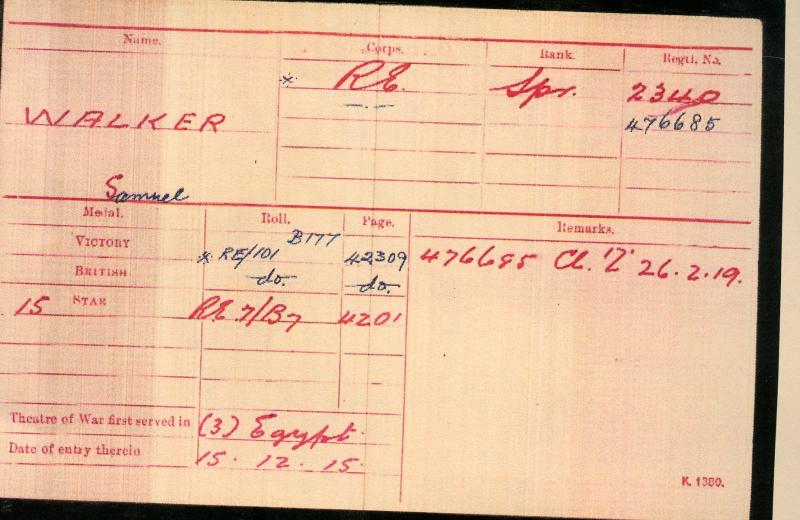 Name. Corps. Rank. Regtl. No.
* R.E. Spr. 2340
—"— 476685
WALKER
Samuel
Medal. Roll. Page. Remarks.
VICTORY * RE/101 B177 42309 476685 Cl. 'Z' 26.2.19.
BRITISH do. do.
15 STAR RE 7/B7 4201
Theatre of War first served in (3) Egypt.
Date of entry therein 15. 12. 15.
K. 1380.